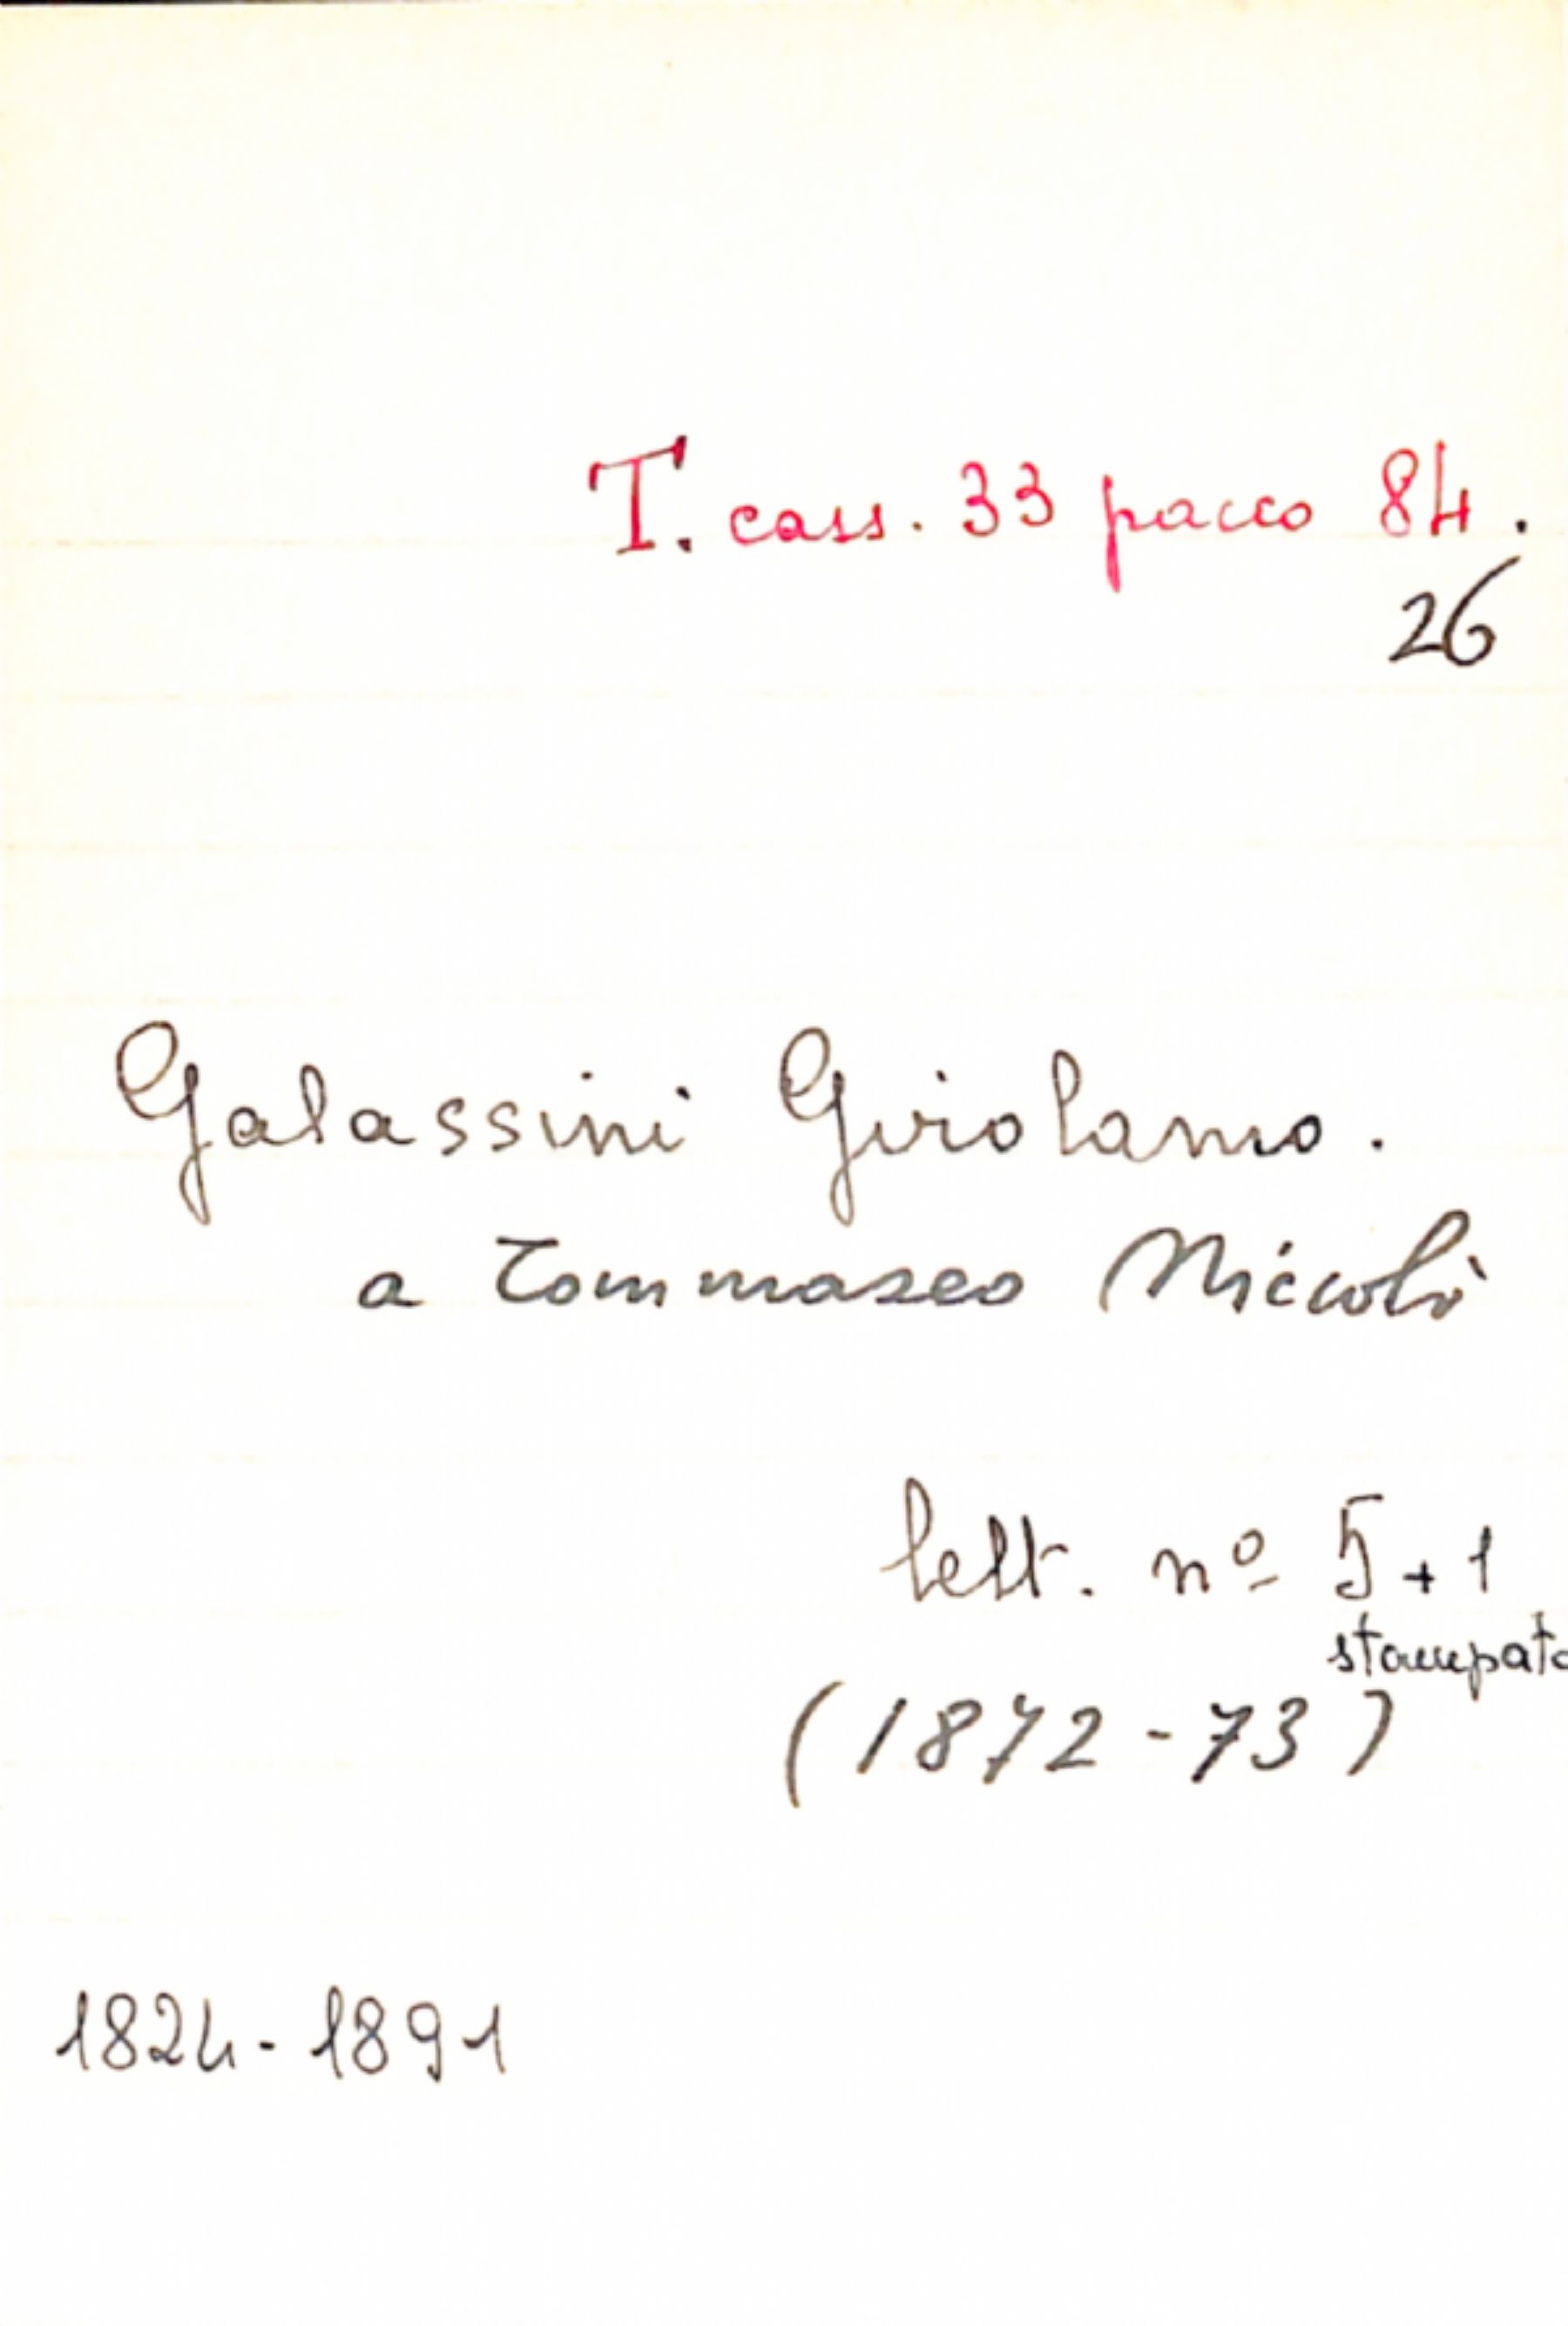 T. cass. 33 pacco 84.
26
Galassini Girolamo.
a Tommaseo Niccolò
lett. nº 5 + 1
stampato
(1872-73)
1824-1891